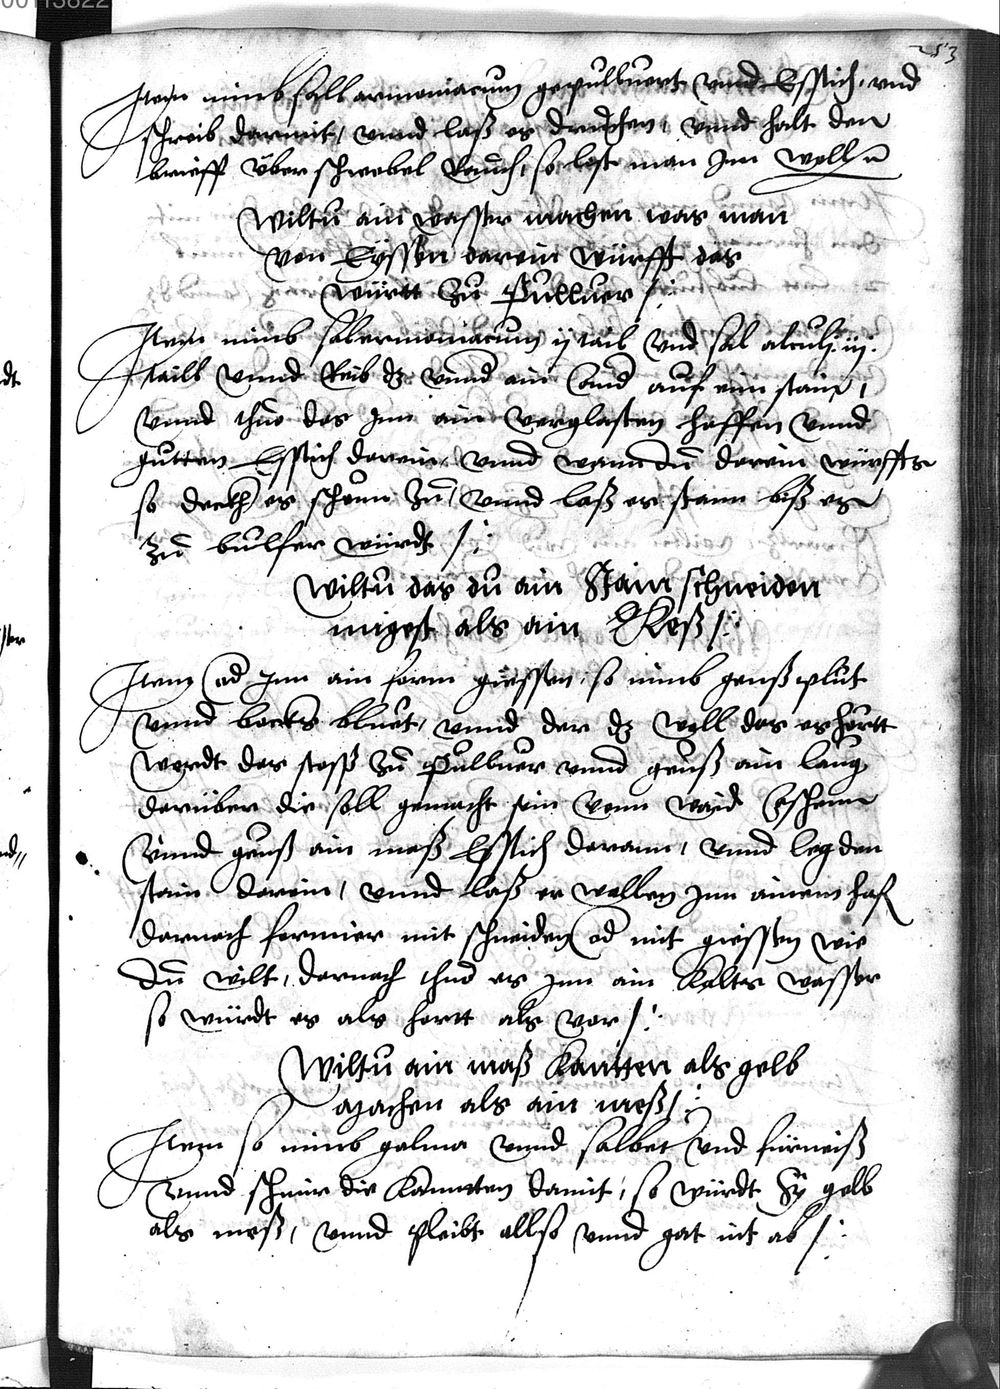 00113822
253
Item nimb sall armoniacum gepulluert vnnd Essich, vnd
schreib darmit, vnnd laß es druckhen, vnnd halt den
brieff über schwebel Rauch, so lest man Inn woll
Wiltu ain wasser machen was man
von Eyssen darein würfft das
württ zu Pulluer /:
Item nimb salarmoniacum ij tail vnd sal alculj iij.
taill vnnd Reib dz vnnd ain auf eim stain,
vnnd thuo das Inn ain verglasten haffen vnnd
gutten Essich darein, vnnd wann du darein würffts
so deckh es schonn zu, vnnd laß es stann biß es
zu bulfer würdt /:
Wiltu das du ain Stain schneiden
migest als ain Keß /:
Item od Inn ain form giessen, so nimb genß plut
vnnd bockhs bluet, vnnd der dz woll das es hertt
werdt das stoß zu Pulluer vnnd geuß ain laug
darüber die soll gemacht sein vonn waid eschenn
vnnd geuß ain maß Essich darann, vnnd leg den
stain darein, vnnd laß er wallen Inn ainem haf
darnach formier mit schneiden od mit giessen wie
du wilt, darnach thuo es Inn ain kalts wasser
so würdt es als hertt als vor /:
Wiltu ain maß Kantten als gelb
machen als ain meß /:
Item so nimb galma vnnd salbet vnd fürneiß
vnnd schmir die Kanntten damit, so würdt sy gelb
als meß, vnnd pleibt allso vnnd gat nit ab /: